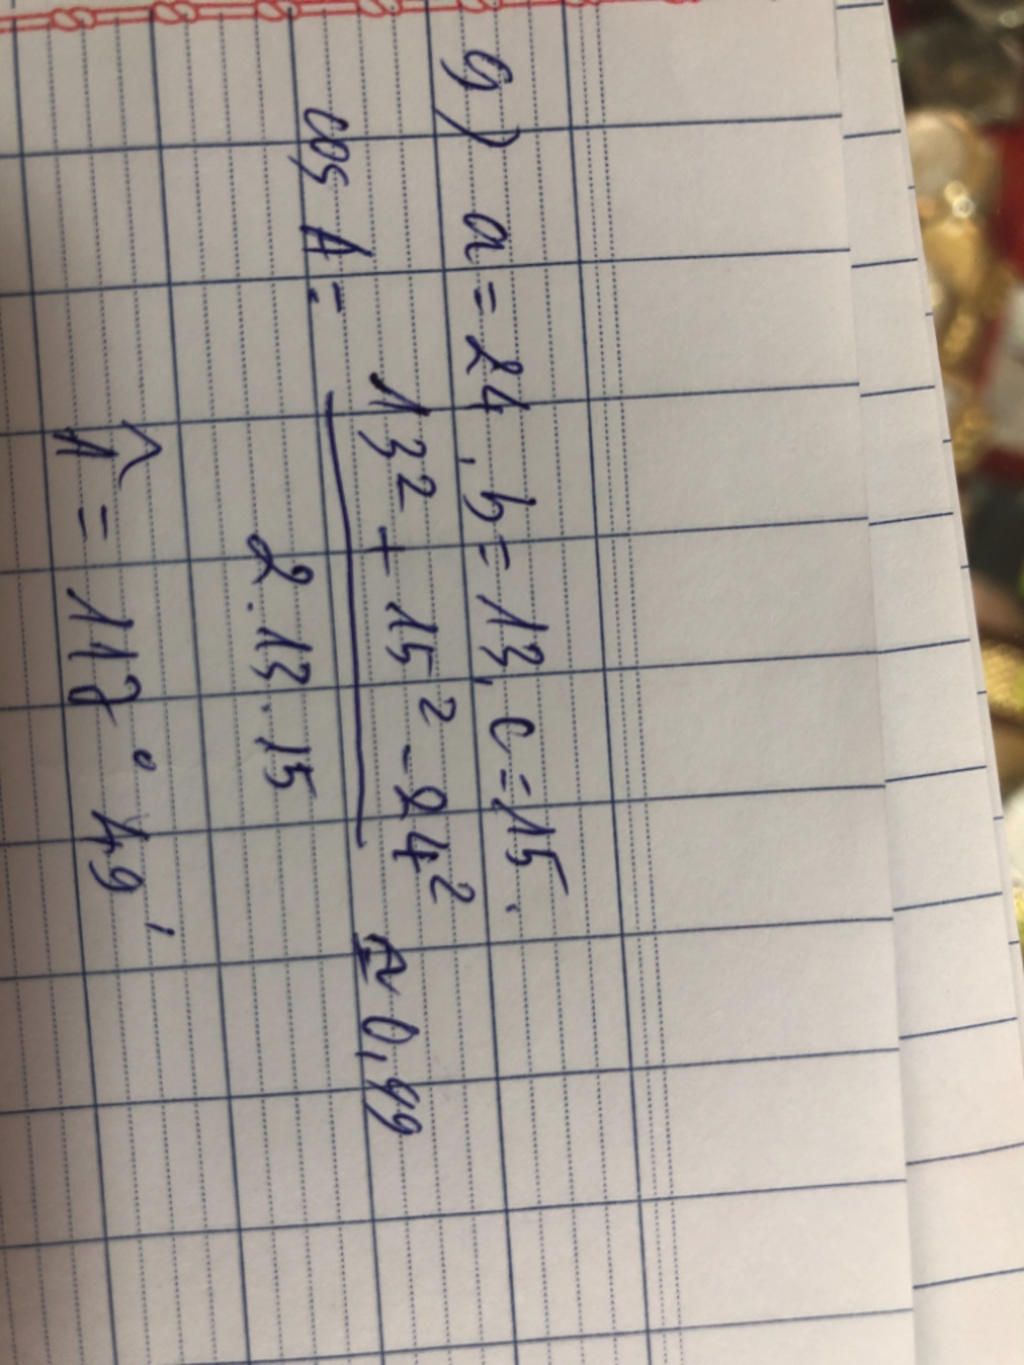 g) a = 24, b = 13, c = 15.
cos A = (13² + 15² - 24²) / (2.13.15) ≈ 0,49
Â = 118° 49'